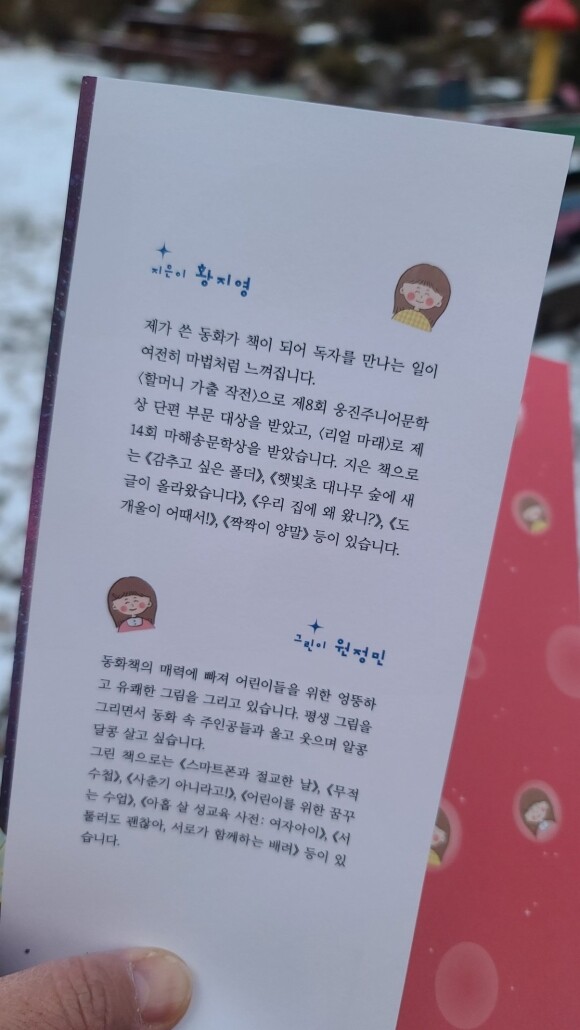 지은이 황지영
제가 쓴 동화가 책이 되어 독자를 만나는 일이
여전히 마법처럼 느껴집니다.
〈할머니 가출 작전〉으로 제8회 웅진주니어문학
상 단편 부문 대상을 받았고, 〈리얼 마래〉로 제
14회 마해송문학상을 받았습니다. 지은 책으로
는 《감추고 싶은 폴더》, 《햇빛초 대나무 숲에 새
글이 올라왔습니다》, 《우리 집에 왜 왔니?》, 《도
개울이 어때서!》, 《짝짝이 양말》 등이 있습니다.
그린이 원정민
동화책의 매력에 빠져 어린이들을 위한 엉뚱하
고 유쾌한 그림을 그리고 있습니다. 평생 그림을
그리면서 동화 속 주인공들과 울고 웃으며 알콩
달콩 살고 싶습니다.
그린 책으로는 《스마트폰과 절교한 날》, 《무적
수첩》, 《사춘기 아니라고!》, 《어린이를 위한 꿈꾸
는 수업》, 《아홉 살 성교육 사전: 여자아이》, 《서
툴러도 괜찮아, 서로가 함께하는 배려》 등이 있
습니다.